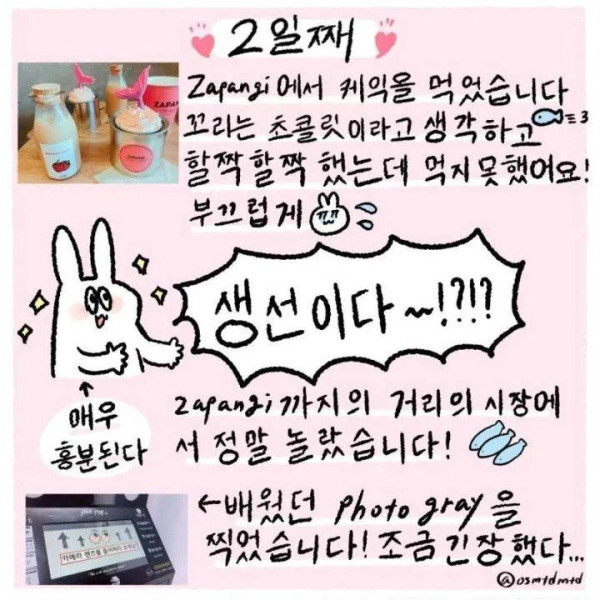 2일째
Zapangi에서 케익을 먹었습니다
꼬리는 초콜릿이라고 생각하고
할짝할짝 했는데 먹지못했어요!
부끄럽게
ZAPAN
생선이다~!?!?
매우
흥분된다
zapangi까지의 거리의 시장에
서 정말 놀랐습니다!
←배웠던 photo gray을
찍었습니다! 조금 긴장했다...
카메라 렌즈를
@osmtdmtd